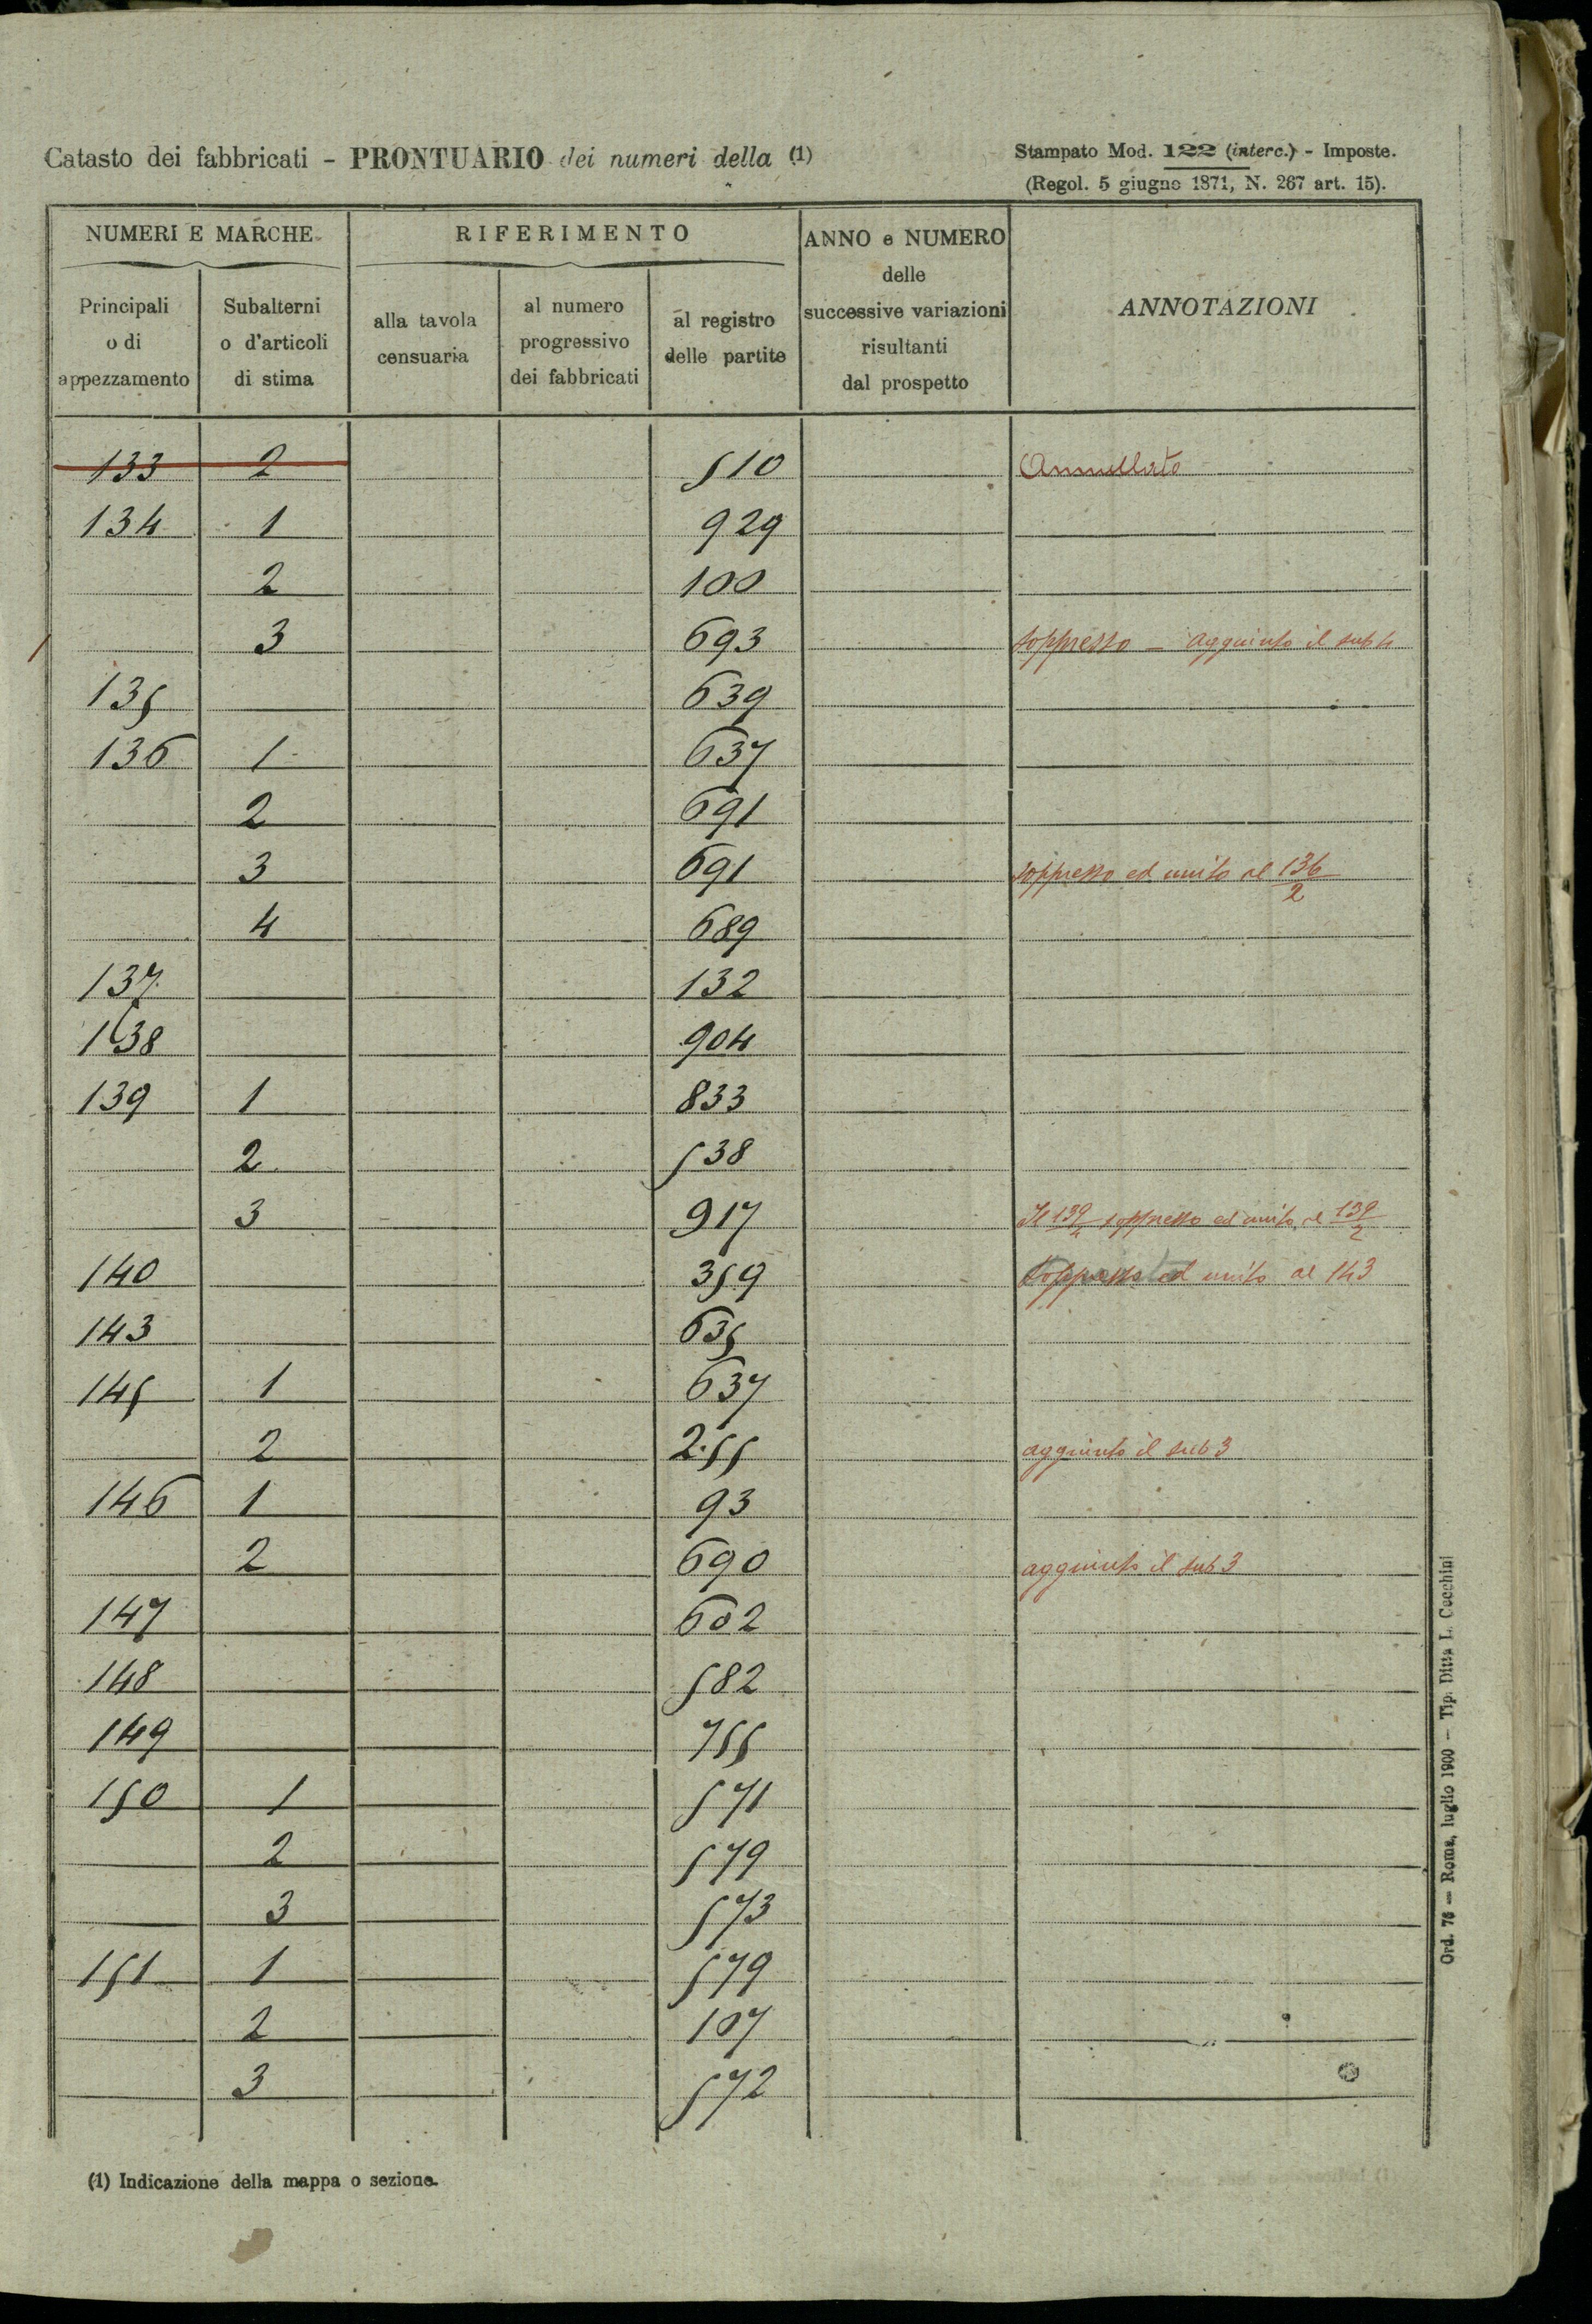 Catasto dei fabbricati - PRONTUARIO dei numeri della (1)
Stampato Mod. 122 (interc.) - Imposte.
(Regol. 5 giugno 1871, N. 267 art. 15).
NUMERI E MARCHE
RIFERIMENTO
ANNO e NUMERO
delle
successive variazioni
risultanti
dal prospetto
ANNOTAZIONI
Principali
o di
appezzamento
Subalterni
o d'articoli
di stima
alla tavola
censuaria
al numero
progressivo
dei fabbricati
al registro
delle partite
133 2 510 Annullato
134 1 929
2 100
3 693 soppresso - aggiunto il sub 4
135 639
136 1 637
2 691
3 691 soppresso ed unito al 136/2
4 689
137 132
138 904
139 1 833
2 538
3 917 Il 139/4 soppresso ed unito al 139/2
140 359 soppresso ed unito al 143
143 635
145 1 637
2 255 aggiunto il sub 3
146 1 93
2 690 aggiunto il sub 3
147 602
148 582
149 755
150 1 571
2 579
3 573
151 1 579
2 107
3 572
(1) Indicazione della mappa o sezione.
Ord. 76 — Roma, luglio 1900 — Tip. Ditta L. Cecchini